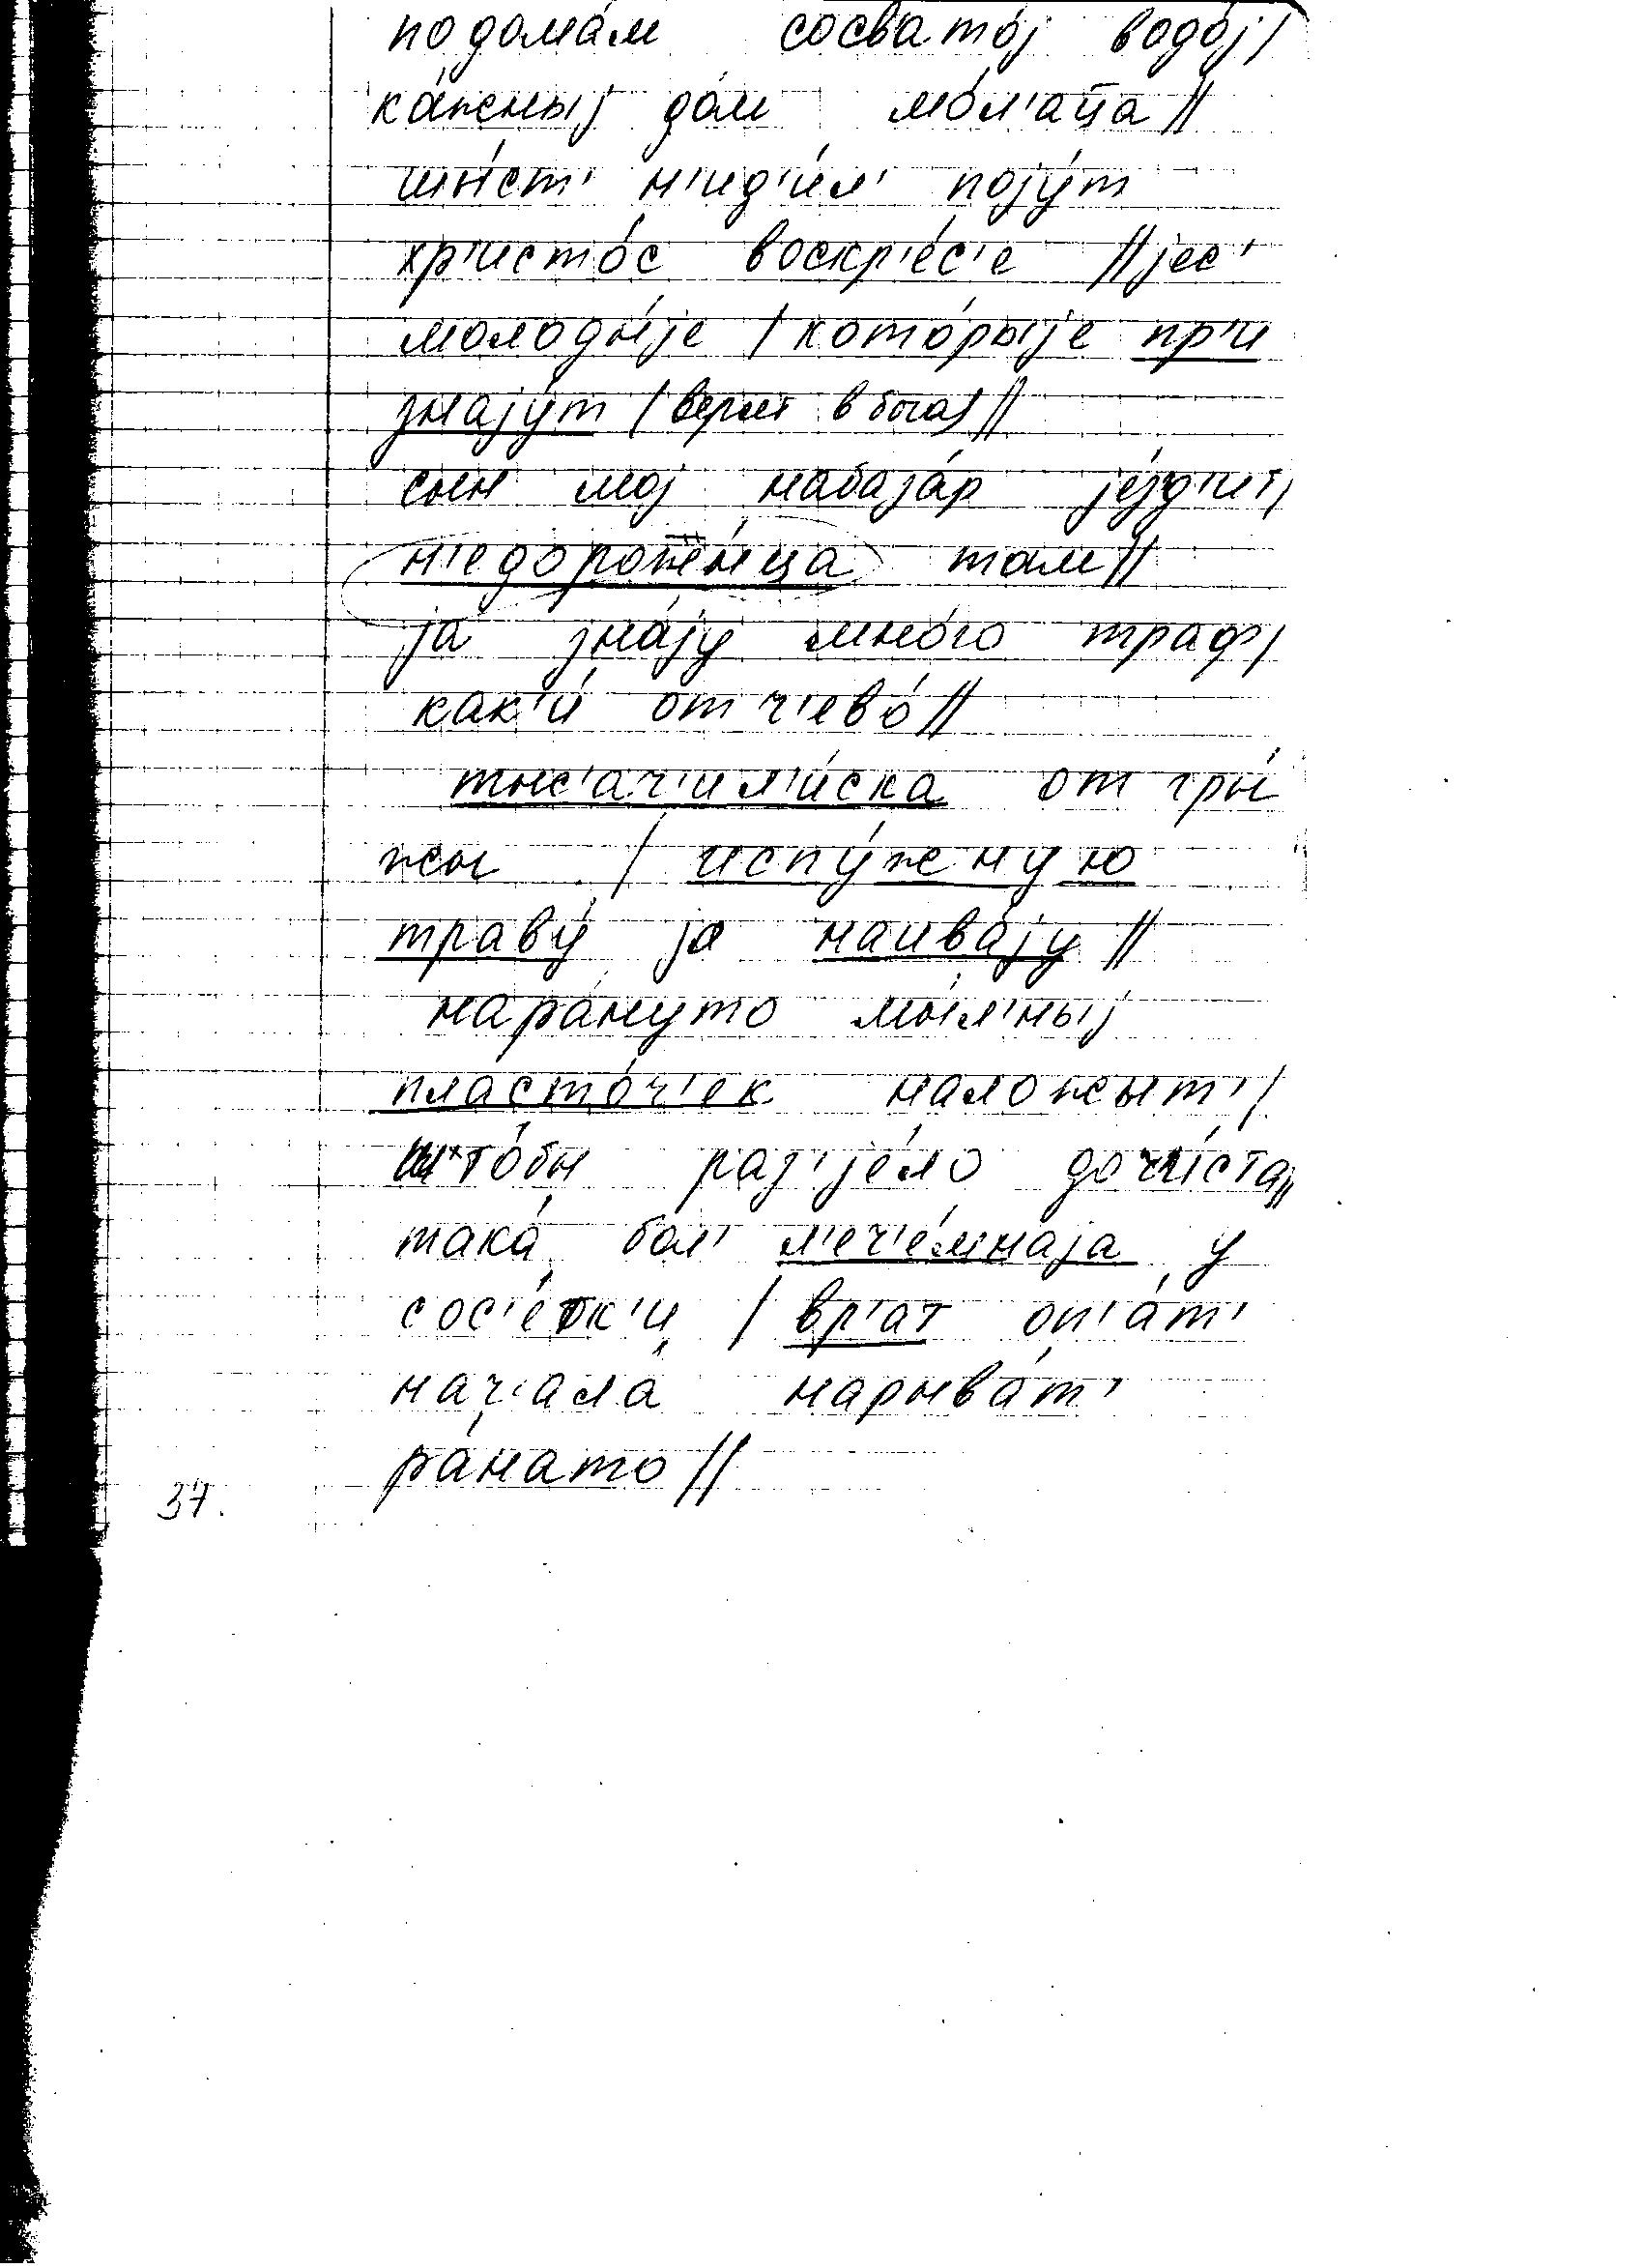 подома́м сосвато́j водо́j/
ка́жныj до́м мо́л'аца//
шы́ст' н'ид'и́л' поjу́т
хр'исто́с воскр'е́с'е //jес'
молоды́jе /кото́рыjе пр'и
знаjу́т (верят в бога)//
сын моj набаза́р jе́зд'ит/
н'едорожы́ца там//
jа зна́jу мно́го траф/
как'и́ отч'ево́//
тыс'ач'ил'и́ска от гры́
жы / испу́жену ю
траву́ jа наива́jу //
нара́нуто мы́л'ныj
пласто́ч'ек наложыт'/
што́бы раз'jе́ло дочи́ста//
така́ бол' л'еч'е́мнаjа у
сос'е́тк'и / вр'ат оп'а́т'
нач'ала́ нарыва́т'
ра́нато//
37.